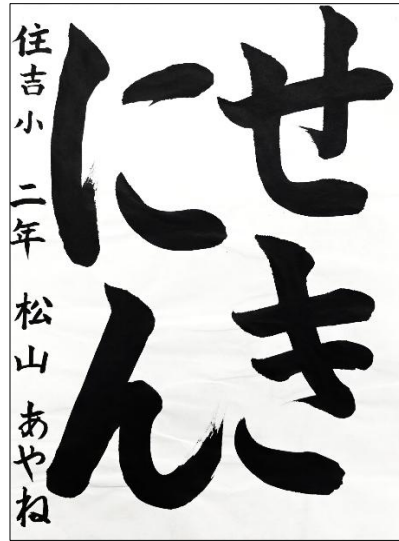 せき
にん
住吉小 二年 松山 あやね